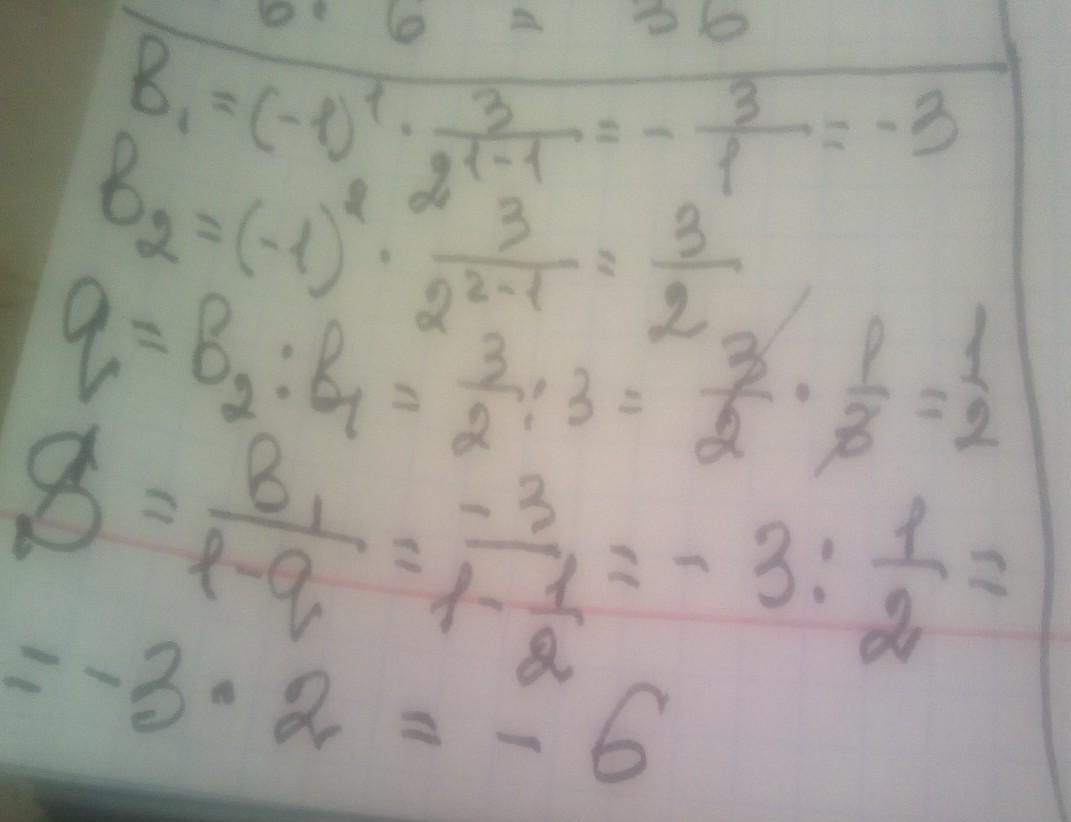 6 · 6 = 36
B₁ = (-1)¹ · 3/2¹⁻¹ = - 3/1 = -3
B₂ = (-1)² · 3/2²⁻¹ = 3/2
q = B₂ : B₁ = 3/2 : 3 = 3/2 · 1/3 = 1/2
S = B₁/1-q = -3/1-1/2 = -3 : 1/2 =
= -3 · 2 = -6